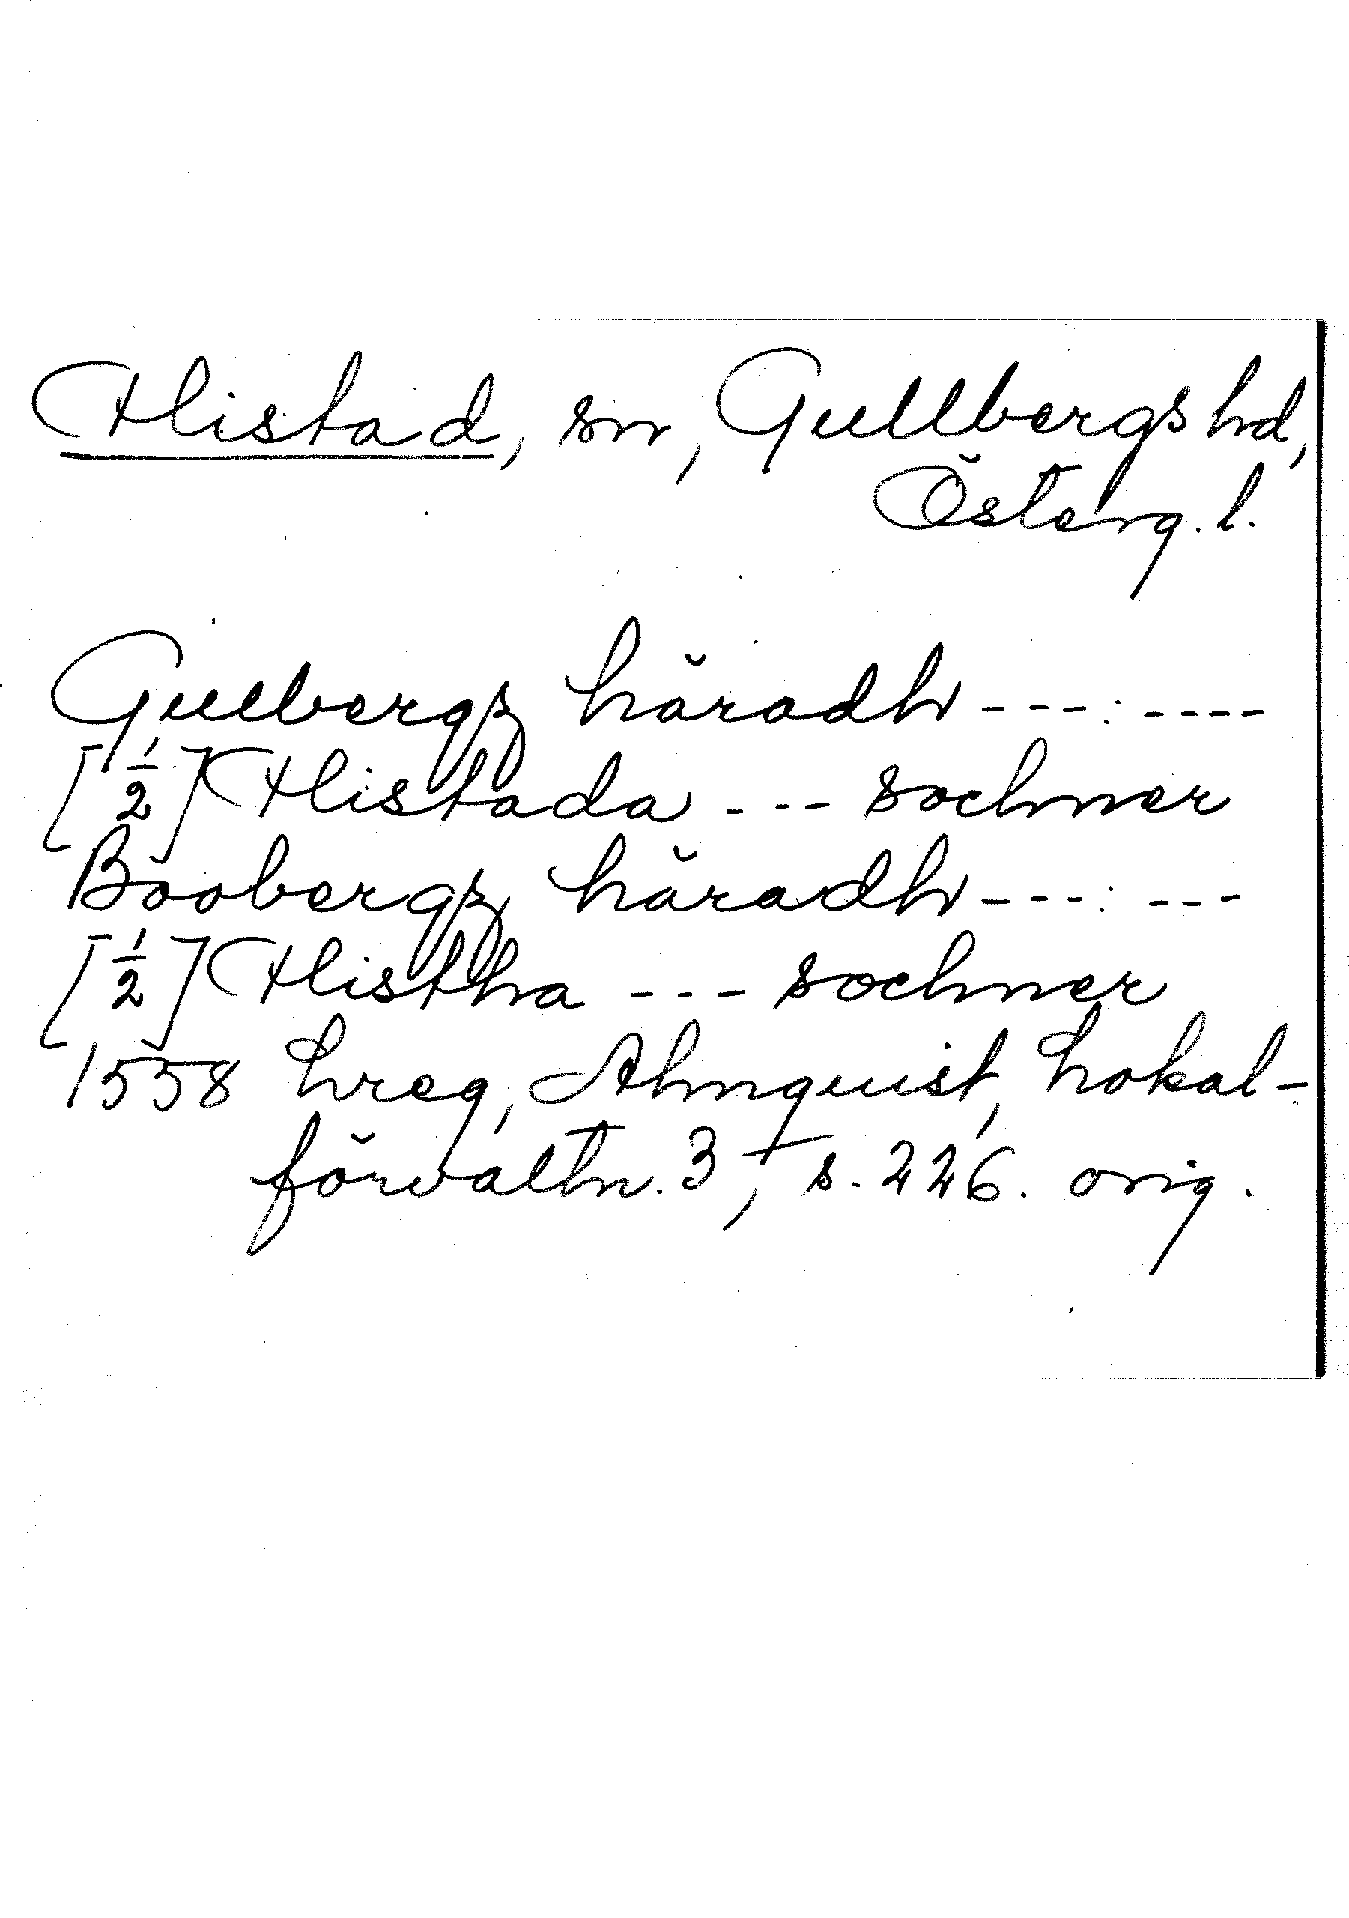 Flistad, sn, Gullbergs hd,
Österg. l.
Gulbergz häradh ---: ----
[½] Flistada --- sochner
Boobergz häradh ---: ---
[½] Flistha --- sochner
1558 hreg, Almquist, Lokal-
förvaltn. 3, s. 226. orig.